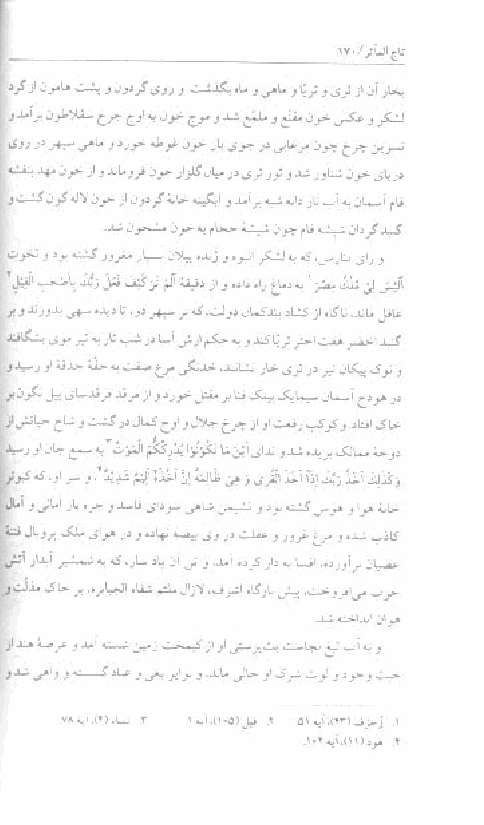 تاج المآثر / ۱۷۰
بخار آن از ثری و ثریّا و ماهی و ماه بگذشت و روی گردون و پشت هامون از گرد
لشکر و عکس خون مقنّع و ملمّع شد و موج خون به اوج چرخ سقلاطون برآمد و
نسرین چرخ چون مرغابی در جوی بار خون غوطه خورد و ماهی سپهر در روی
دریای خون شناور شد و ثور ثری در میان گلزار خون فروماند و از خون مهد بنفشه
فام آسمان به آب نار دانه شبه برآمد و آبگینه خانۀ گردون از خون لاله گون گشت و
گنبد گردان شیشه فام چون شیشۀ حجام به خون مشحون شد.
و رای بنارس، که به لشکر انبوه و ژنده پیلان بسیار مغرور گشته بود و نخوت
اَلَیْسَ لِیْ مُلْکُ مِصْرَ ۱ به دماغ راه داده و از دقیقۀ اَلَمْ تَرَ کَیْفَ فَعَلَ رَبُّکَ بِاَصْحٰبِ الْفِیْلِ ۲
غافل ماند، ناگاه از گشاد بندگان دولت، که بر سپهر دو، تا دیده سهی بدوزند و بر
گنبد اخضر هفت اختر ثریّا کند و به حکم ارش آسا در شب تار به تیر موی بشگافند
و نوک پیکان تیر در ثری خار نشانند، خدنگی مرغ صفت به حلقۀ حدقۀ او رسید و
در هودج آسمان سیمابک بیلک فنا بر مقتل خورد و از مرقد فرقدسای پیل نگون بر
خاک افتاد و کوکب رفعت او از چرخ جلال و اوج کمال در گشت و شاخ حیاتش از
دوحۀ ممالک بریده شد و ندای اَیْنَ مَا تَکُوْنُوْا یُدْرِکْکُّمُ الْمَوْتُ ۳ به سمع جان او رسید
وَکَذٰلِکَ اَخْذُ رَبِّکَ اِذَآ اَخَذَ الْقُرٰی وَ هِیَ ظَالِمَةٌ اِنَّ اَخْذَهٗٓ اَلِیْمٌ شَدِیْدٌ ۴. و سر او، که کبوتر
خانۀ هوا و هوس گشته بود و نشیمن شاهی سودای فاسد و جره باز امانی و آمال
کاذب شده و مرغ غرور و غفلت در وی بیضه نهاده و در هوای ملک پر و بال فتنۀ
عصیان برآورده، اقسا به دار کرده آمد، و تن آن باد سار، که به شمشیر آبدار آتش
حرب می‌افروخت، پیش بارگاه اشرف، لازال ملثم شفاه الجبابره، بر خاک مذلّت و
هوان انداخته شد.
و به آب تیغ نجاست بت‌پرستی او از کیمخت زمین شسته آمد و عرصۀ هند از
خبث وجود و لوث شرک او خالی ماند، و نوایر بغی و عناد گسسته و راهی شد و
۱. زخرف (۴۳)، آیه ۵۱ ۲. فیل (۱۰۵)، آیه ۱ ۳. نساء (۴)، آیه ۷۸
۴. هود (۱۱)، آیه ۱۰۲.